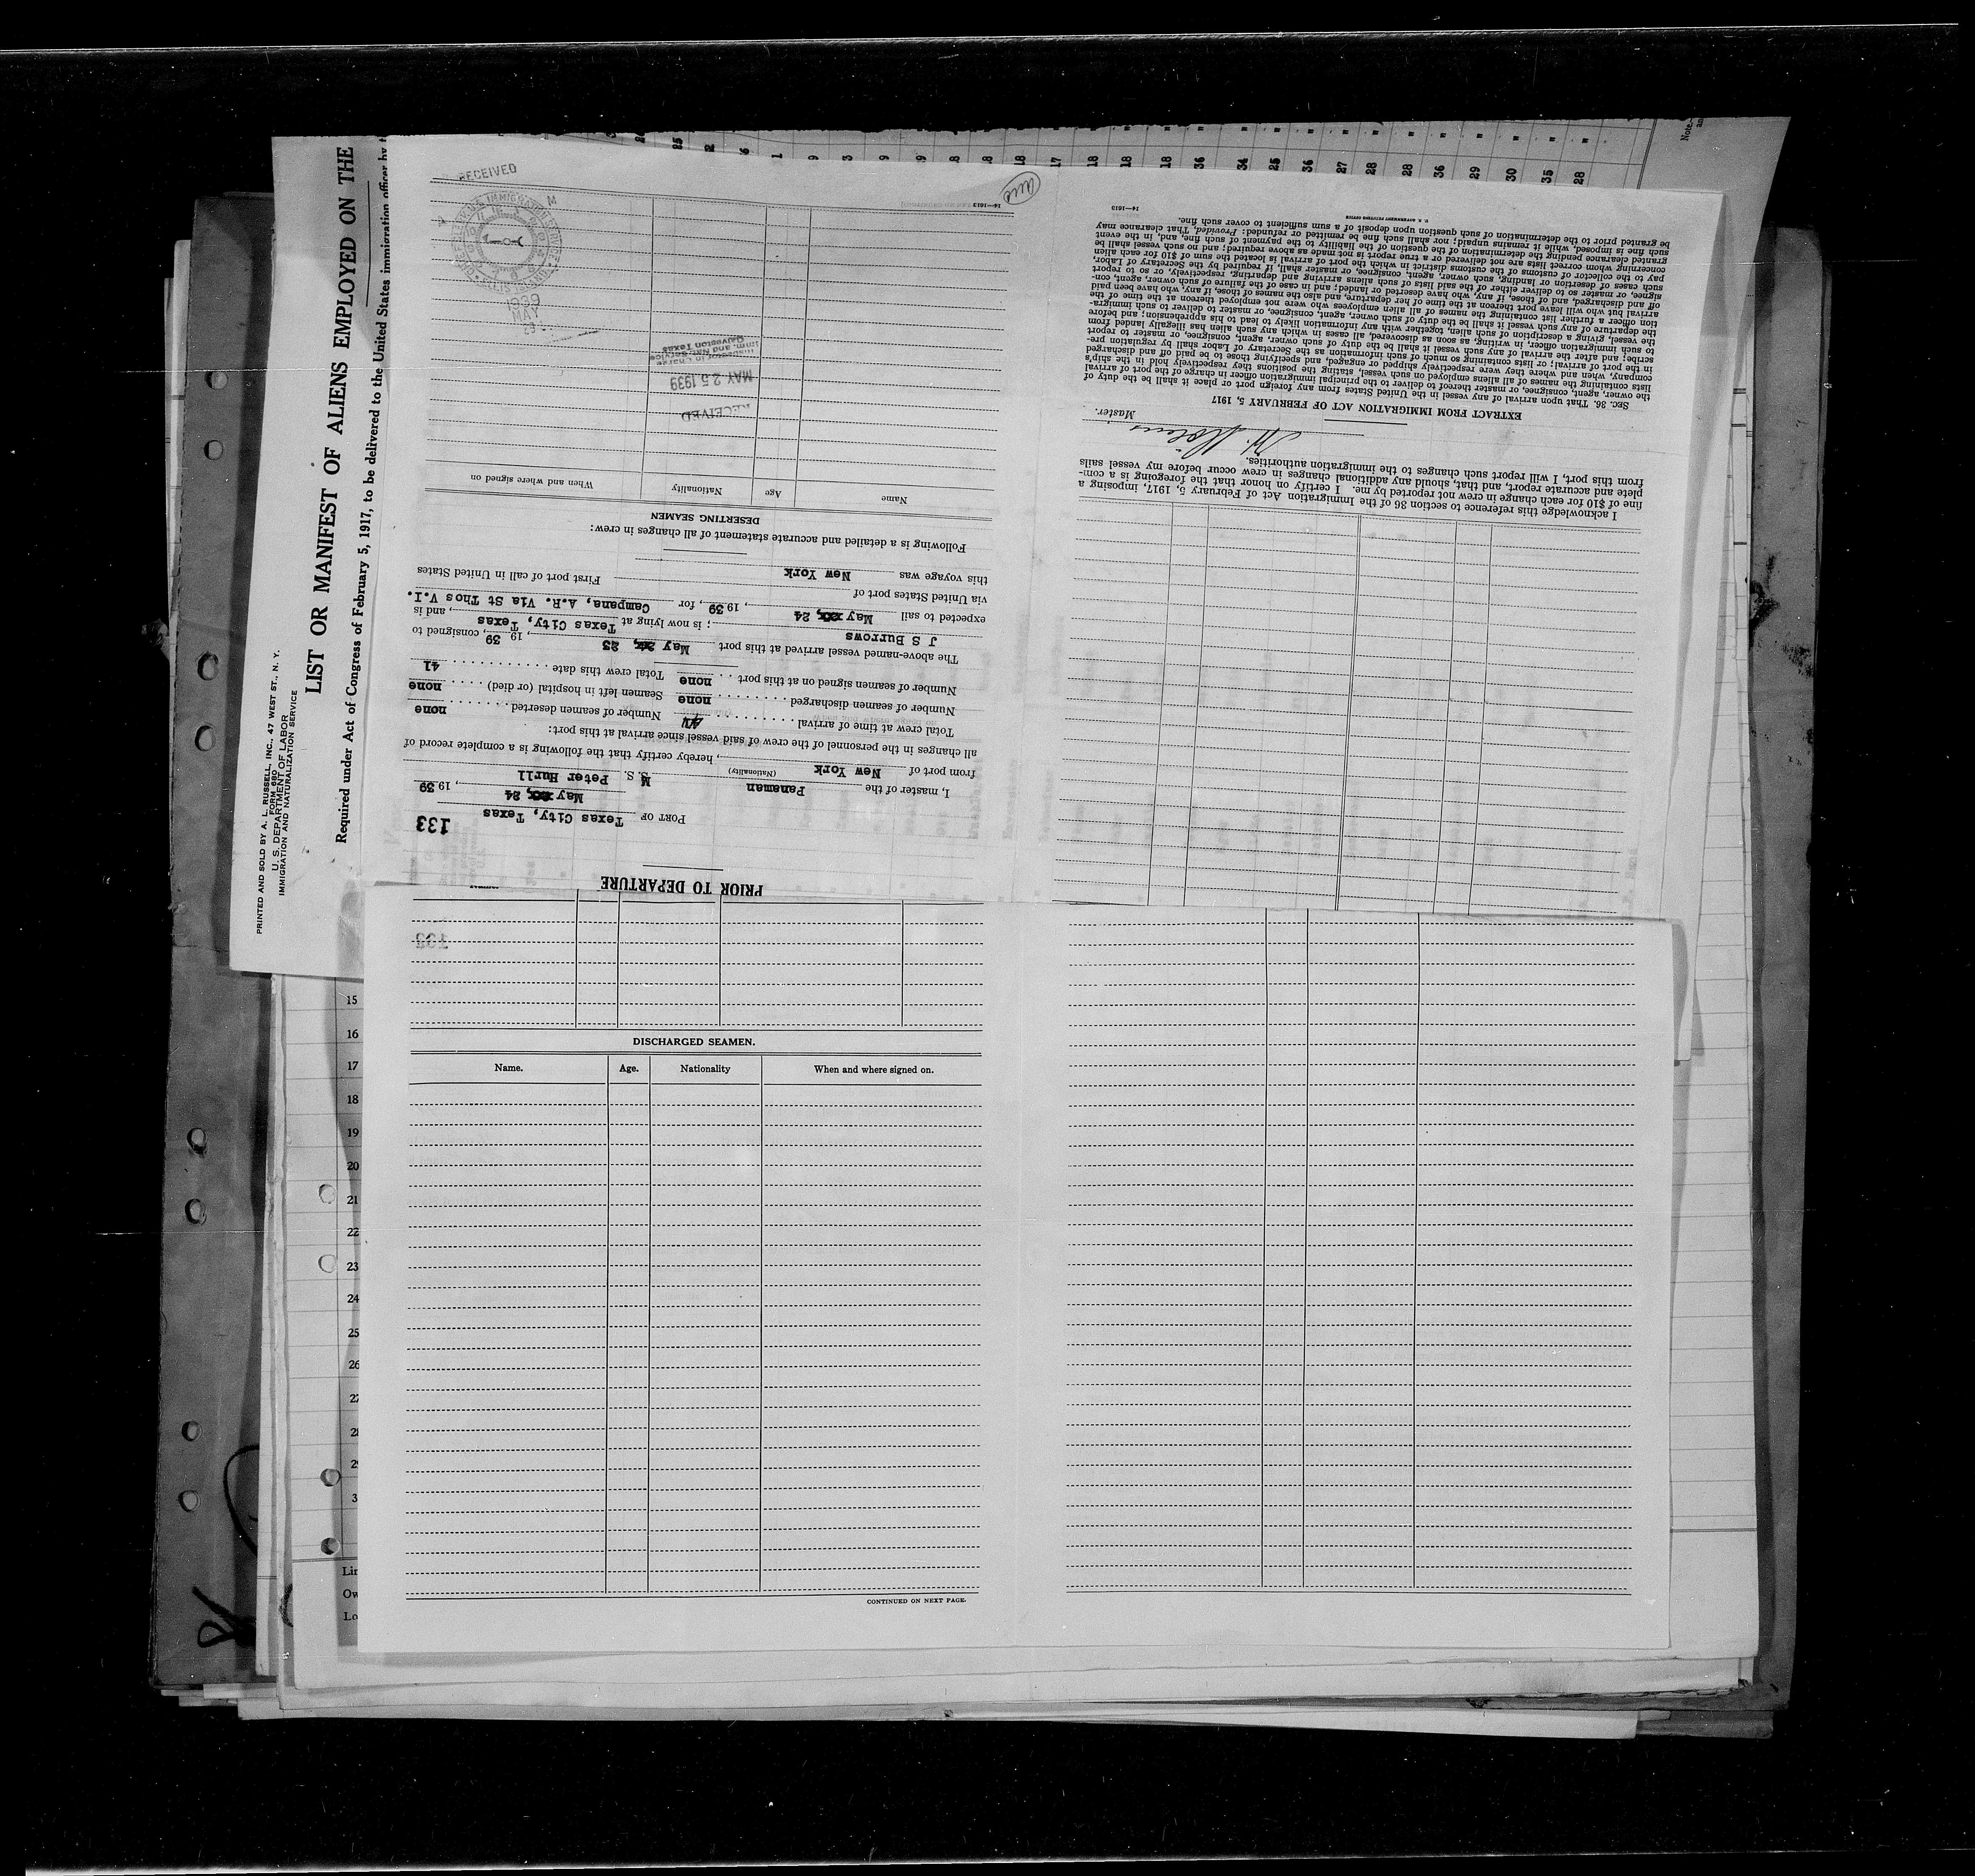 PRINTED AND SOLD BY A. L. RUSSELL, INC., 47 WEST ST., N. Y.
FORM 680
U. S. DEPARTMENT OF LABOR
IMMIGRATION AND NATURALIZATION SERVICE
LIST OR MANIFEST OF ALIENS EMPLOYED ON THE
Required under Act of Congress of February 5, 1917, to be delivered to the United States immigration officer by
PRIOR TO DEPARTURE
133
PORT OF Texas City, Texas
May 24, 1939
I, master of the Panaman M S. S. Peter Hurll
(Nationality)
from port of New York, hereby certify that the following is a complete record of
all changes in the personnel of the crew of said vessel since arrival at this port:
Total crew at time of arrival 41 Number of seamen deserted none
Number of seamen discharged none Seamen left in hospital (or died) none
Number of seamen signed on at this port none Total crew this date 41
The above-named vessel arrived at this port May 23, 1939, consigned to
J S Burrows; is now lying at Texas City, Texas, and is
expected to sail May 24, 1939, for Campana, A.R. Via St Thos V.I.
via United States port of
this voyage was New York First port of call in United States
Following is a detailed and accurate statement of all changes in crew:
DESERTING SEAMEN
Name Age Nationality When and where signed on
RECEIVED
MAY 25 1939
Inspector in Charge
Imm. and Nat. Service
Galveston Texas
RECEIVED
1939
MAY
14—1613
I acknowledge this reference to section 36 of the Immigration Act of February 5, 1917, imposing a
fine of $10 for each change in crew not reported by me. I certify on honor that the foregoing is a com-
plete and accurate report, and that, should any additional changes in crew occur before my vessel sails
from this port, I will report such changes to the immigration authorities.
Master.
EXTRACT FROM IMMIGRATION ACT OF FEBRUARY 5, 1917
SEC. 36. That upon arrival of any vessel in the United States from any foreign port or place it shall be the duty of
the owner, agent, consignee, or master thereof to deliver to the principal immigration officer in charge of the port of arrival
lists containing the names of all aliens employed on such vessel, stating the positions they respectively hold in the ship's
company, when and where they were respectively shipped or engaged, and specifying those to be paid off and discharged
in the port of arrival; or lists containing so much of such information as the Secretary of Labor shall by regulation pre-
scribe; and after the arrival of any such vessel it shall be the duty of such owner, agent, consignee, or master to report
to such immigration officer, in writing, as soon as discovered, all cases in which any such alien has illegally landed from
the vessel, giving a description of such alien, together with any information likely to lead to his apprehension; and before
the departure of any such vessel it shall be the duty of such owner, agent, consignee, or master to deliver to such immigra-
tion officer a further list containing the names of all alien employees who were not employed thereon at the time of the
arrival but who will leave port thereon at the time of her departure, and also the names of those, if any, who have been paid
off and discharged, and of those, if any, who have deserted or landed; and in case of the failure of such owner, agent, con-
signee, or master so to deliver either of the said lists of such aliens arriving and departing, respectively, or so to report
such cases of desertion or landing, such owner, agent, consignee, or master shall, if required by the Secretary of Labor,
pay to the collector of customs of the customs district in which the port of arrival is located the sum of $10 for each alien
concerning whom correct lists are not delivered or a true report is not made as above required; and no such vessel shall be
granted clearance pending the determination of the question of the liability to the payment of such fine, and, in the event
such fine is imposed, while it remains unpaid; nor shall such fine be remitted or refunded: Provided, That clearance may
be granted prior to the determination of such question upon deposit of a sum sufficient to cover such fine.
U. S. GOVERNMENT PRINTING OFFICE
14—1613
DISCHARGED SEAMEN.
Name. Age. Nationality When and where signed on.
CONTINUED ON NEXT PAGE.
15
16
17
18
19
20
21
22
23
24
25
26
27